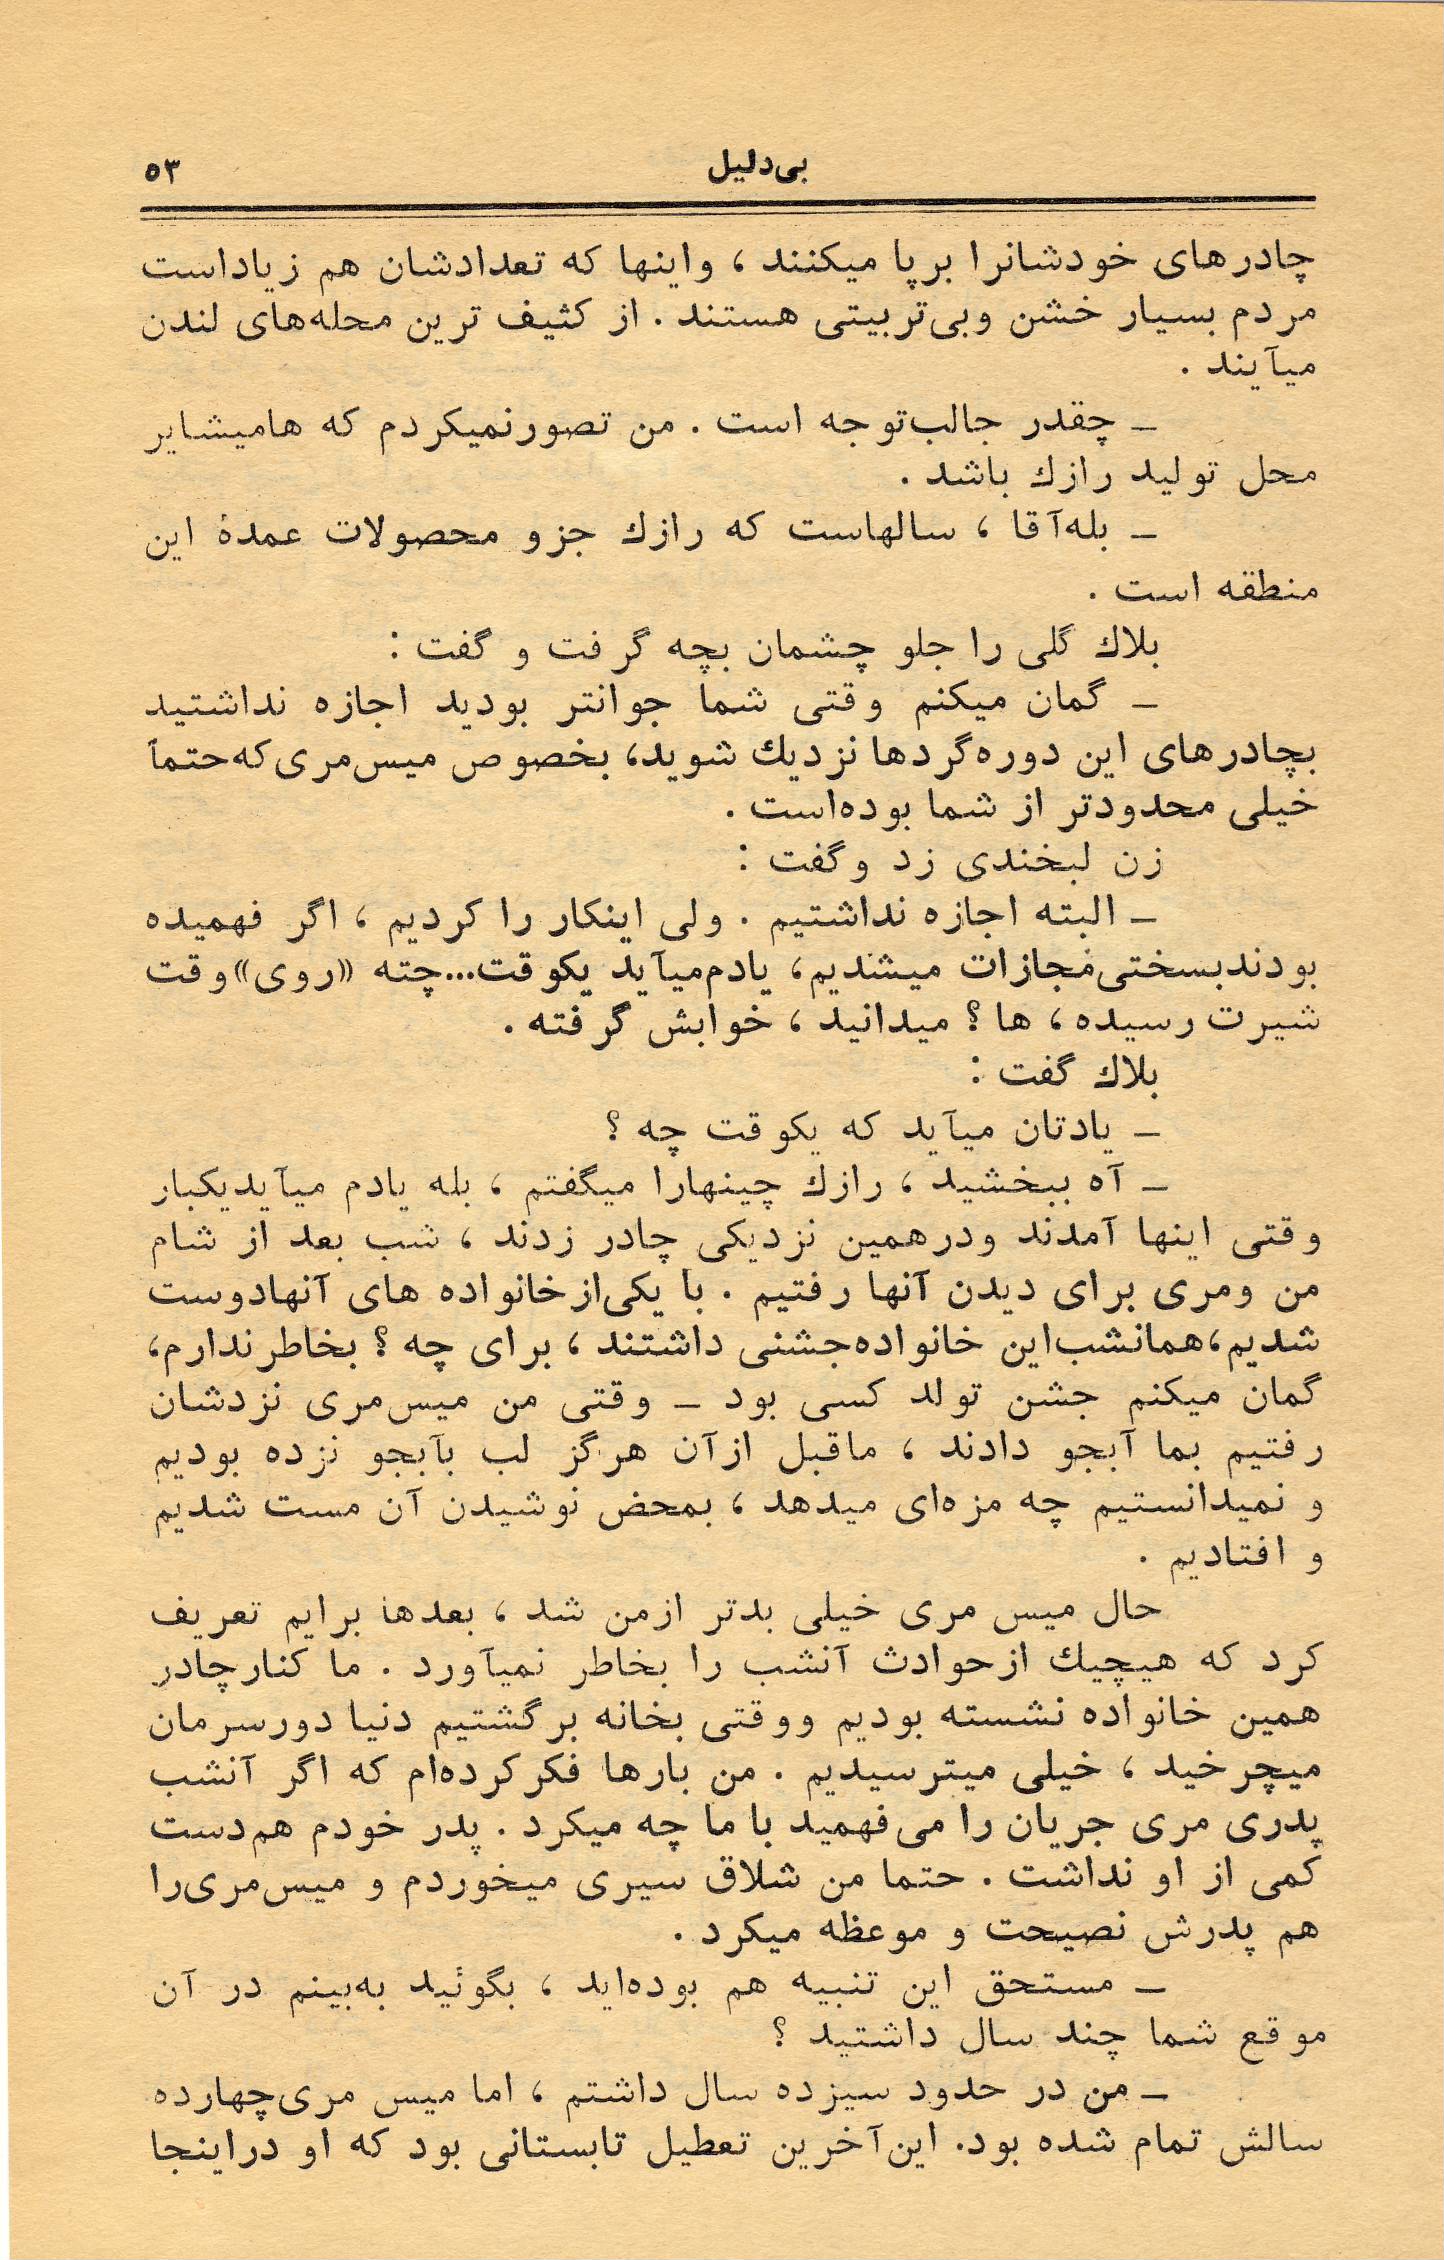 بی‌دلیل
۵۳
چادرهای خودشانرا برپا میکنند ، واینها که تعدادشان هم زیاداست
مردم بسیار خشن وبی‌تربیتی هستند . از کثیف ترین محله‌های لندن
میآیند .
ـ چقدر جالب‌توجه است . من تصورنمیکردم که هامیشایر
محل تولید رازك باشد .
ـ بله‌آقا ، سالهاست که رازك جزو محصولات عمدهٔ این
منطقه است .
بلاك گلی را جلو چشمان بچه گرفت و گفت :
ـ گمان میکنم وقتی شما جوانتر بودید اجازه نداشتید
بچادرهای این دوره‌گردها نزدیك شوید، بخصوص میس‌مری‌که‌حتماً
خیلی محدودتر از شما بوده‌است .
زن لبخندی زد وگفت :
ـ البته اجازه نداشتیم . ولی اینکار را کردیم ، اگر فهمیده
بودندبسختی‌مجازات میشدیم، یادم‌میآید یکوقت...چته «روی» وقت
شیرت رسیده ، ها ؟ میدانید ، خوابش گرفته .
بلاك گفت :
ـ یادتان میآید که یکوقت چه ؟
ـ آه ببخشید ، رازك چینهارا میگفتم ، بله یادم میآیدیکبار
وقتی اینها آمدند ودرهمین نزدیکی چادر زدند ، شب بعد از شام
من ومری برای دیدن آنها رفتیم . با یکی‌ازخانواده های آنهادوست
شدیم،همانشب‌این خانواده‌جشنی داشتند ، برای چه ؟ بخاطرندارم،
گمان میکنم جشن تولد کسی بود ـ وقتی من میس‌مری نزدشان
رفتیم بما آبجو دادند ، ماقبل ازآن هرگز لب بآبجو نزده بودیم
و نمیدانستیم چه مزه‌ای میدهد ، بمحض نوشیدن آن مست شدیم
و افتادیم .
حال میس مری خیلی بدتر ازمن شد ، بعدها برایم تعریف
کرد که هیچیك ازحوادث آنشب را بخاطر نمیآورد . ما کنارچادر
همین خانواده نشسته بودیم ووقتی بخانه برگشتیم دنیا دورسرمان
میچرخید ، خیلی میترسیدیم . من بارها فکرکرده‌ام که اگر آنشب
پدری مری جریان را می‌فهمید با ما چه میکرد . پدر خودم هم‌دست
کمی از او نداشت . حتما من شلاق سیری میخوردم و میس‌مری‌را
هم پدرش نصیحت و موعظه میکرد .
ـ مستحق این تنبیه هم بوده‌اید ، بگوئید به‌بینم در آن
موقع شما چند سال داشتید ؟
ـ من در حدود سیزده سال داشتم ، اما میس مری‌چهارده
سالش تمام شده بود. این‌آخرین تعطیل تابستانی بود که او دراینجا